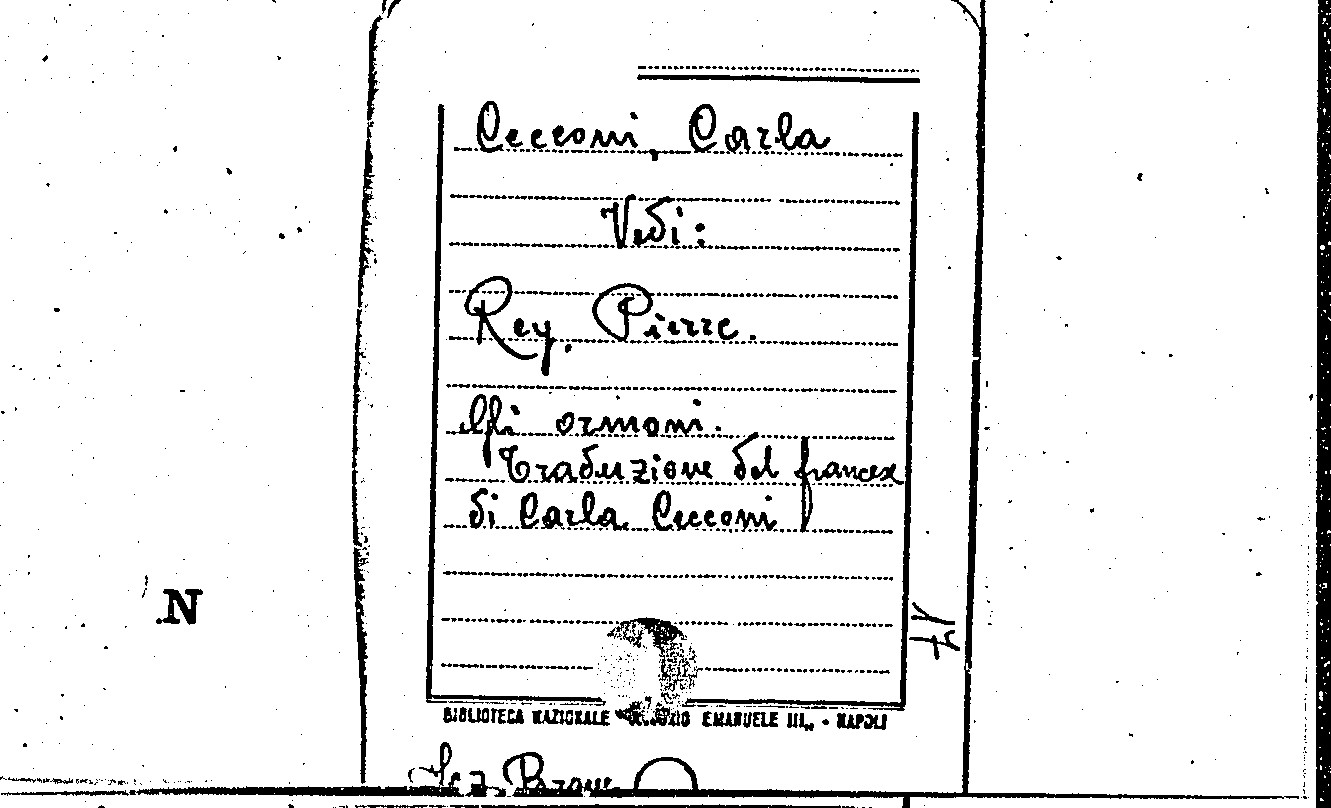 Cecconi, Carla
Vedi:
Rey, Pierre.
Gli ormoni.
Traduzione dal francese
di Carla Cecconi
N
BIBLIOTECA NAZIONALE VITTORIO EMANUELE III„ - NAPOLI